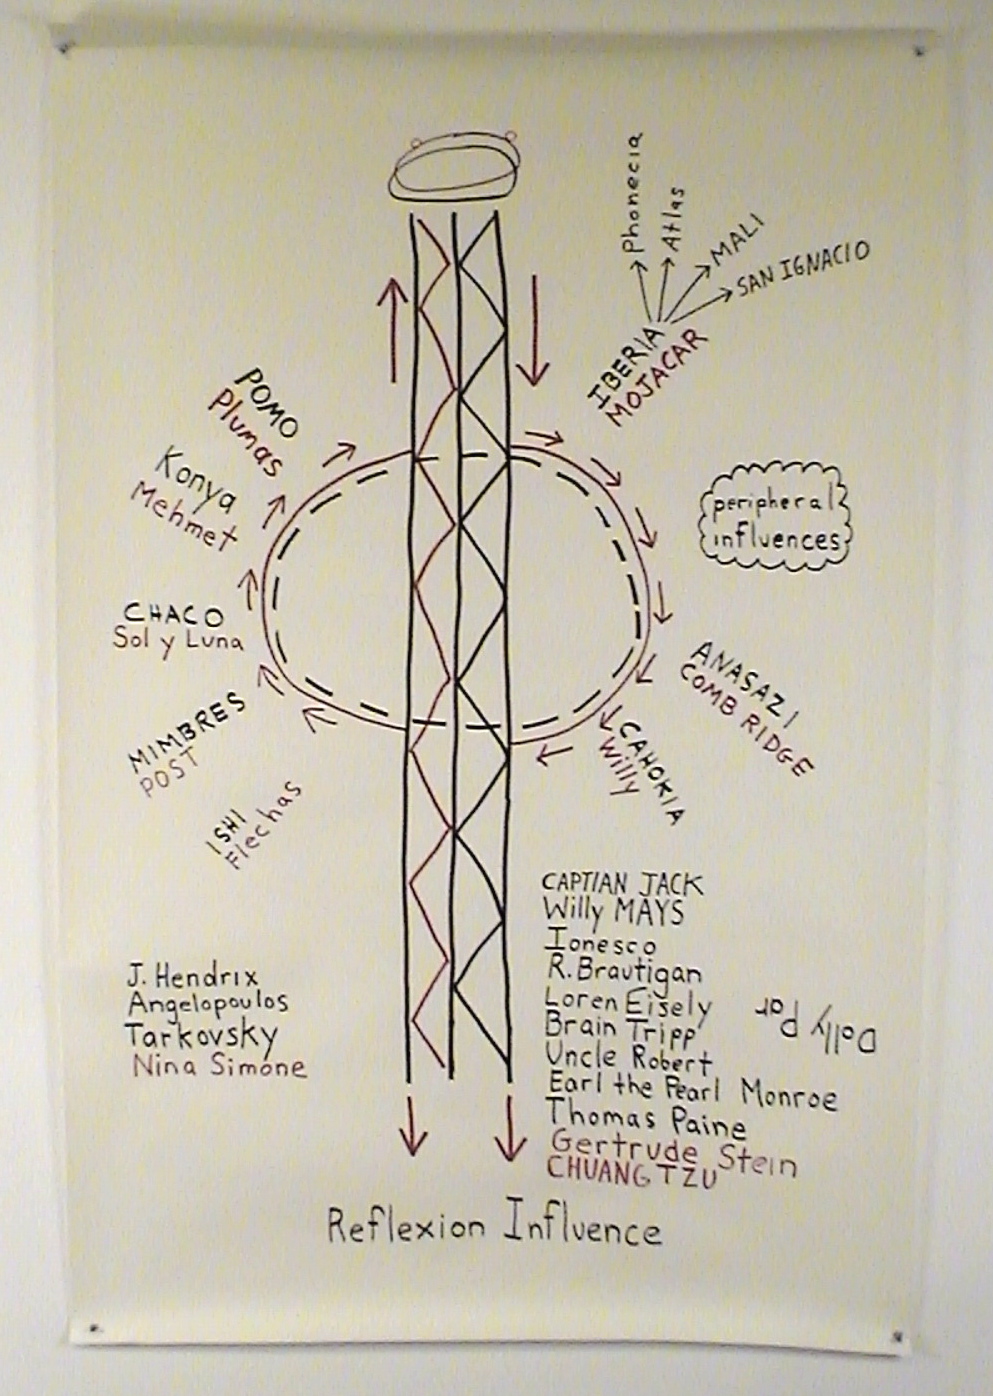 Phonecia
Atlas
MALI
SAN IGNACIO
IBERIA
MOJACAR
POMO
Plumas
Konya
Mehmet
peripheral
influences
CHACO
Sol y Luna
ANASAZI
COMB RIDGE
MIMBRES
POST
CAHOKIA
Willy
ISHI
Flechas
CAPTIAN JACK
Willy MAYS
Ionesco
R. Brautigan
Loren Eisely
Brain Tripp
Uncle Robert
Earl the Pearl Monroe
Thomas Paine
Gertrude Stein
CHUANG TZU
Dolly Par
J. Hendrix
Angelopoulos
Tarkovsky
Nina Simone
Reflexion Influence